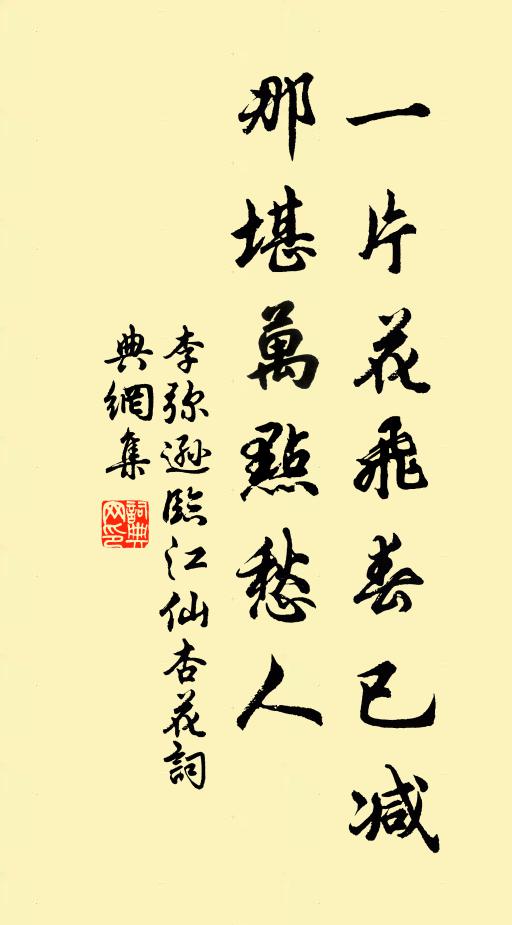 一片花飛春已减
那堪萬點愁人
李弥遜臨江仙杏花詞
典網集
詞典
网印